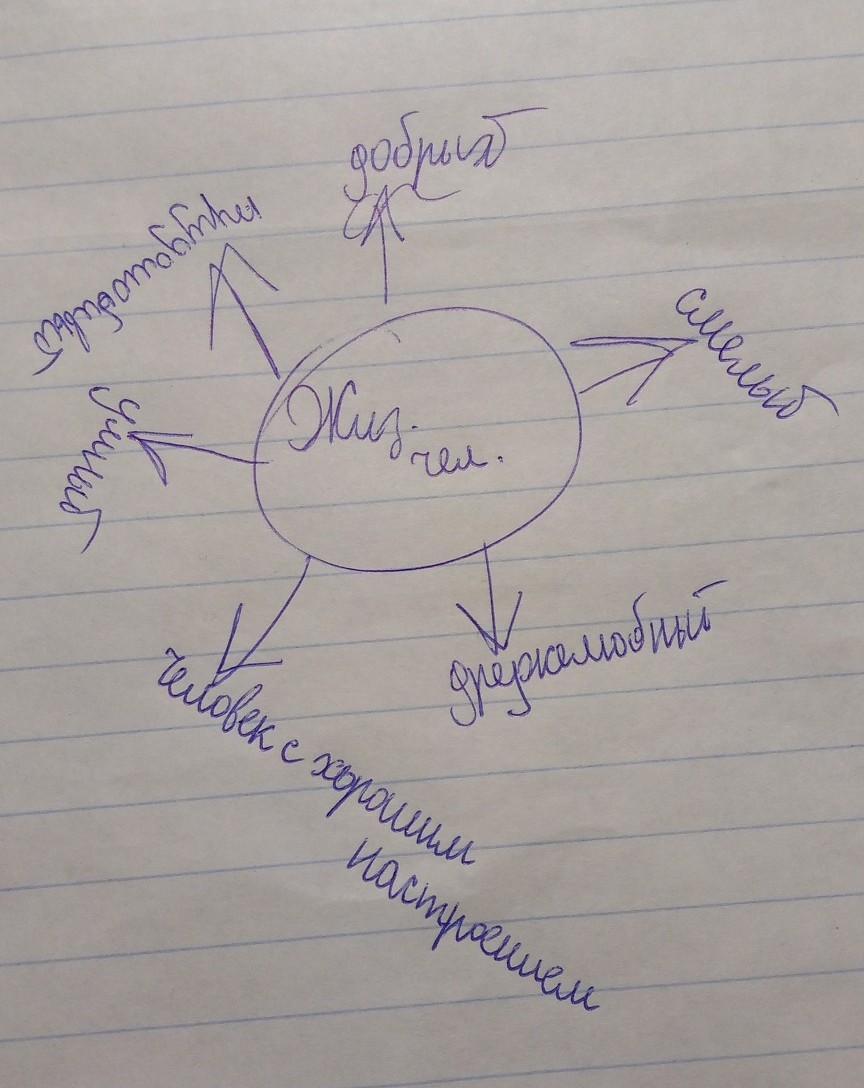 добрый
трудолюбивый
смелый
умный
Жиз.
чел.
дружелюбный
человек с хорошим
настроением